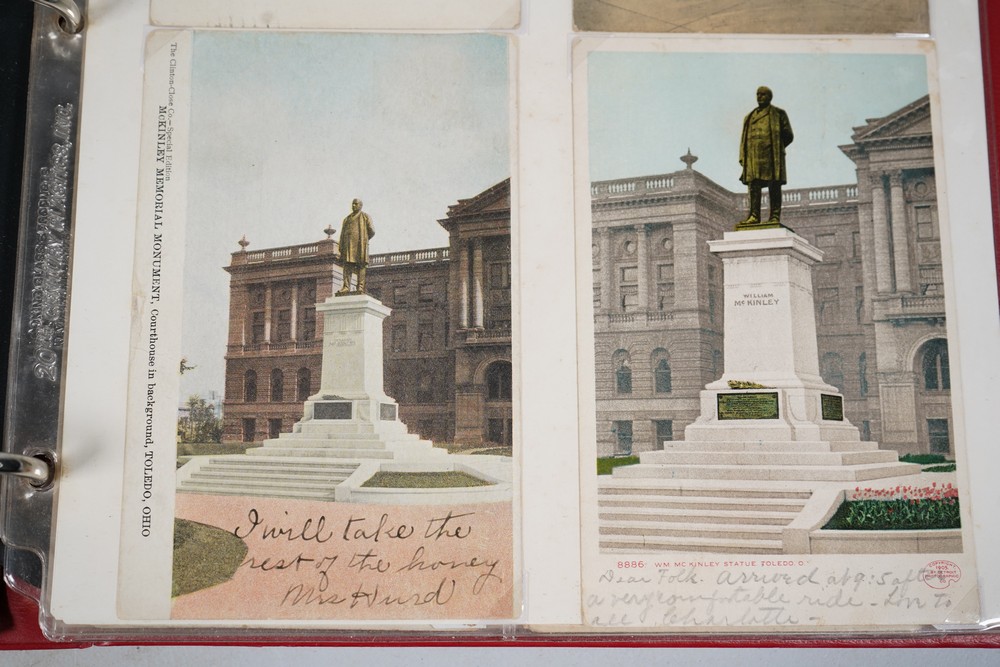 The Clinton-Close Co.—Special Edition
MCKINLEY MEMORIAL MONUMENT, Courthouse in background, TOLEDO, OHIO
I will take the
rest of the honey
Mrs Hurd
WILLIAM
MCKINLEY
8886 WM. MC KINLEY STATUE, TOLEDO, O.
Dear Folk. Arrived at 9:5 aft
a very comfortable ride - Love to
all Charlotte -